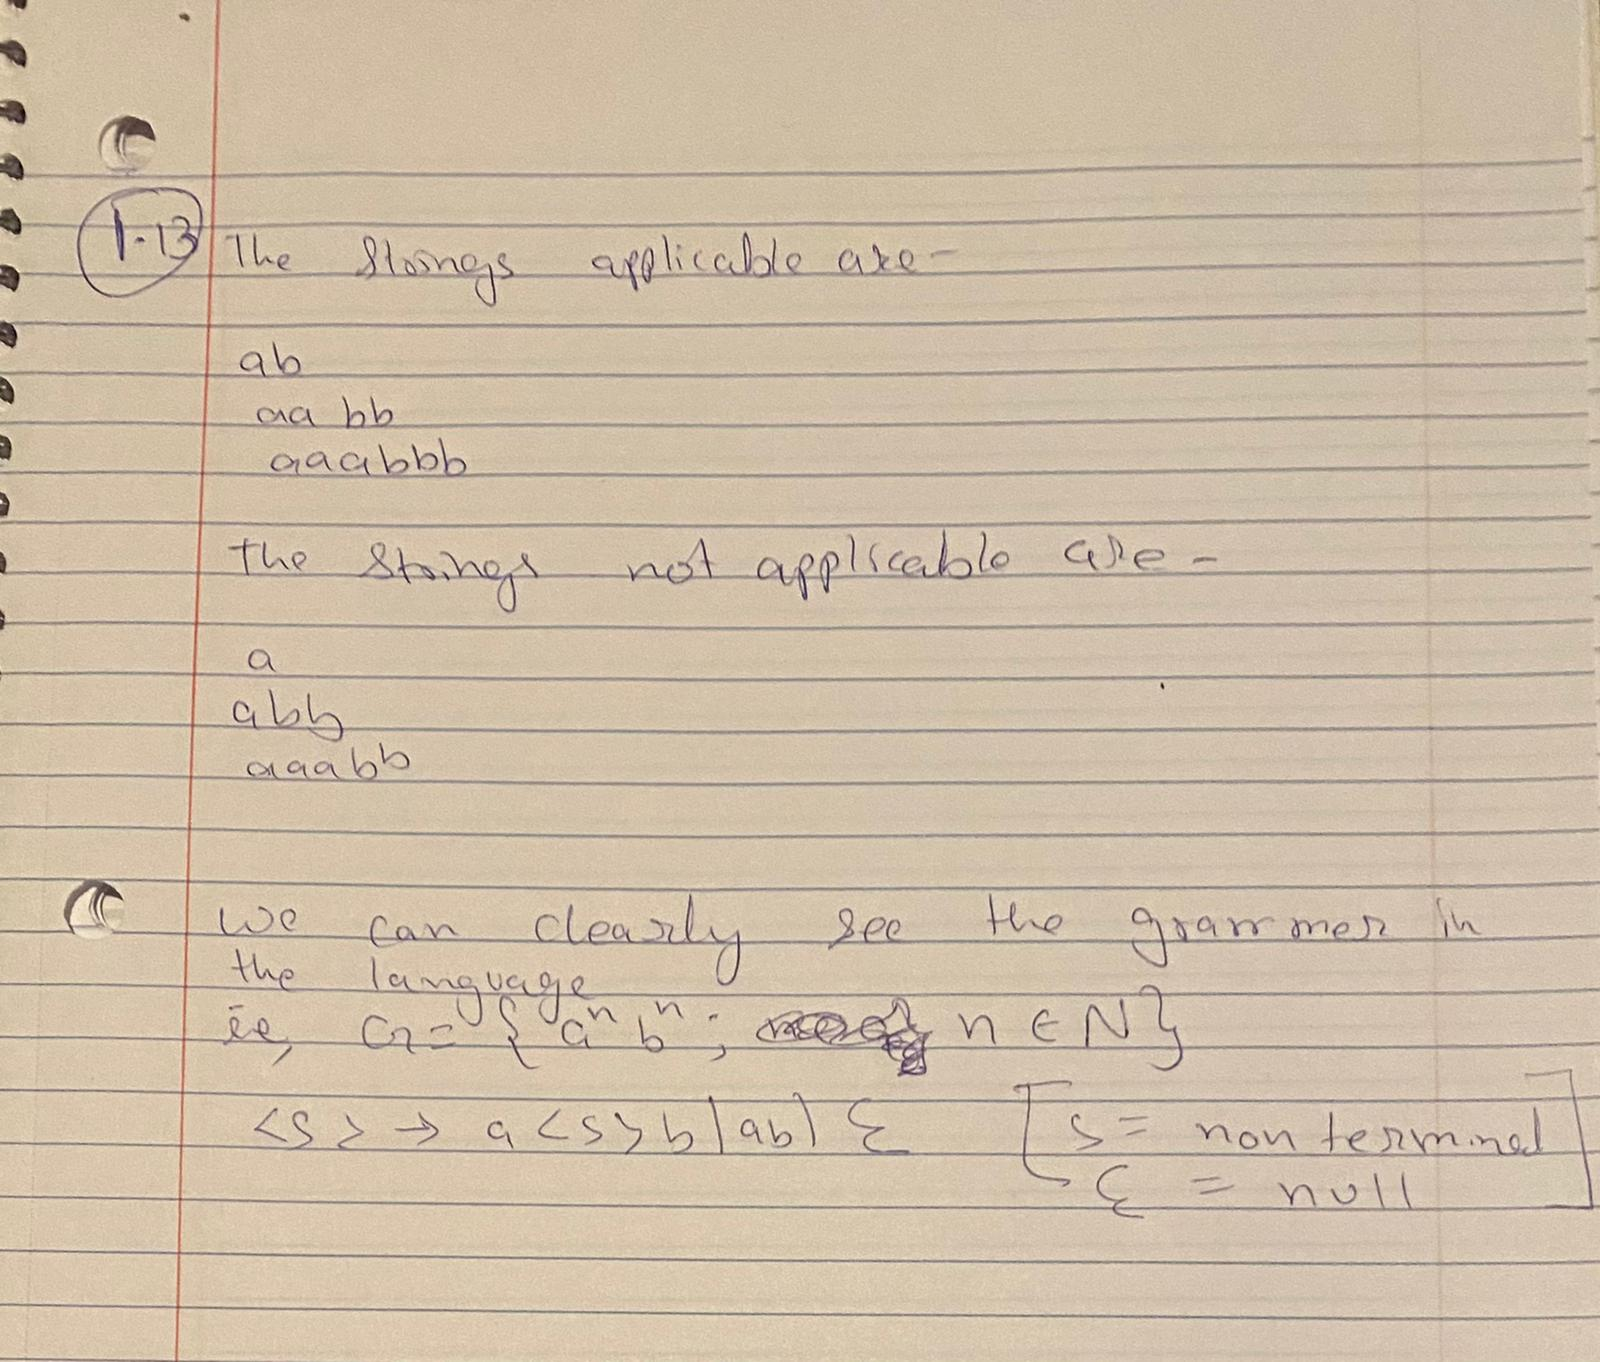 1.13 The Strings applicable are-
ab
aa bb
aaabbb
The Strings not applicable are-
a
abb
aaabb
We can clearly see the grammer in
the language
ie, G = { aⁿ bⁿ ; n ∈ N }
<S> → a <S> b | ab | Ɛ [ S = non terminal
Ɛ = null ]